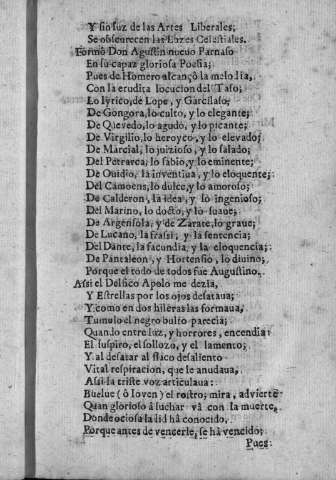 Y sin luz de las Artes Liberales;
Se obscurecen las Luzes Celestiales.
Formò Don Agustin nueuo Parnaso
En su capaz gloriosa Poesia;
Pues de Homero alcançò la melodia,
Con la erudita locucion del Taso;
Lo lyrico, de Lope, y Garcilaso;
De Gongora, lo culto, y lo elegante;
De Queuedo, lo agudo, y lo picante;
De Virgilio, lo heroyco, y lo eleuado;
De Marcial, lo juizioso, y lo salado;
Del Petrarca, lo sabio, y lo eminente;
De Ouidio, la inuentiua, y lo eloquente;
Del Camoens, lo dulce, y lo amoroso;
De Calderon, la idea, y lo ingenioso;
Del Marino, lo docto, y lo suaue;
De Argensola, y de Zarate, lo graue;
De Lucano, la frassi, y la sentencia;
Del Dante, la facundia, y la eloquencia;
De Pantaleon, y Hortensio, lo diuino;
Porque el todo de todos fue Augustino.
Assi el Delfico Apolo me dezia,
Y Estrellas por los ojos desataua;
Y como en dos hileras las formaua,
Tumulo el negro bulto parecia;
Quando entre luz, y horrores, encendia
El suspiro, el sollozo, y el lamento;
Y al desatar al flaco desaliento
Vital respiracion, que le anudaua,
Assi la triste voz articulaua:
Buelue (ò Iouen) el rostro; mira, advierte
Quan glorioso à luchar và con la muerte,
Donde ociosa la lid ha conocido,
Porque antes de vencerle, se ha vencido;
Pues